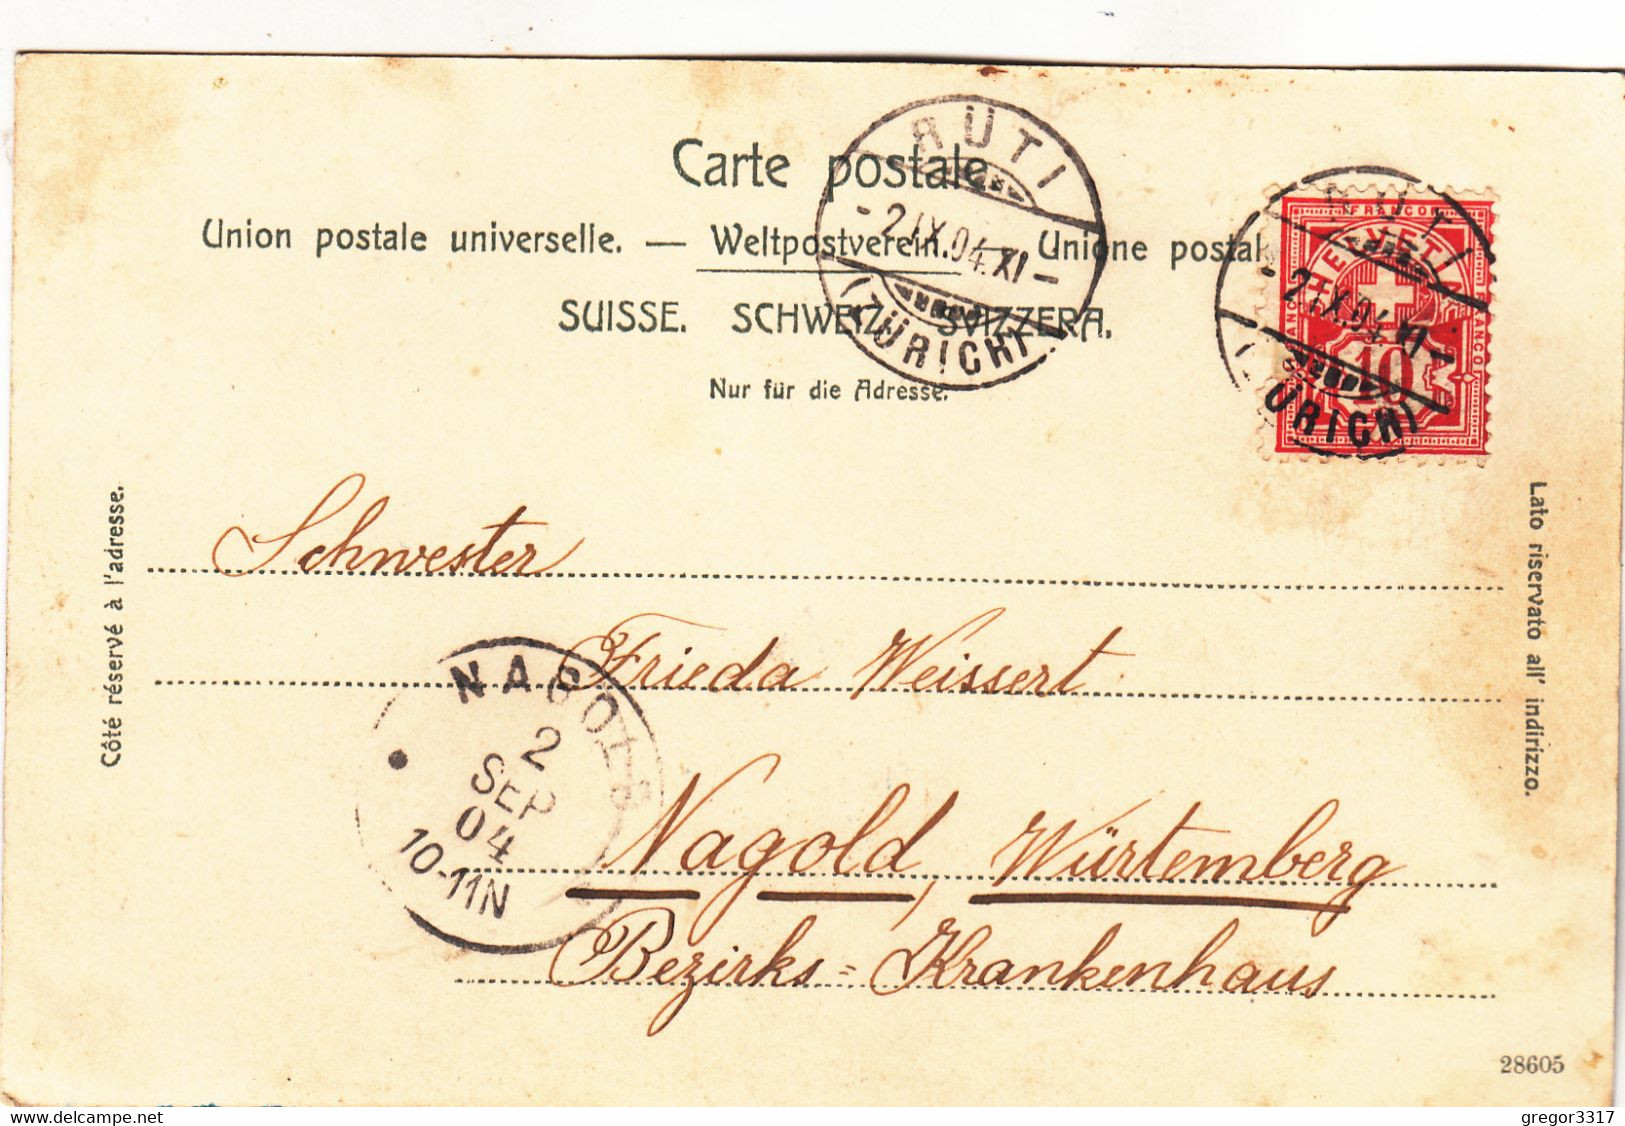 Carte postale
Union postale universelle. — Weltpostverein. — Unione postal
SUISSE. SCHWEIZ. SVIZZERA.
Nur für die Adresse.
RÜTI
- 2 IX.04.XI -
(ZÜRICH)
FRANCO
HELVETIA
10
RÜTI
- 2 IX.04.XI -
(ZÜRICH)
Côté réservé à l'adresse.
Lato riservato all' indirizzo.
Schwester
Frieda Weissert
Nagold, Würtemberg
Bezirks=Krankenhaus
NAGOLD
2
SEP
04
10-11N
28605
delcampe.net
gregor3317